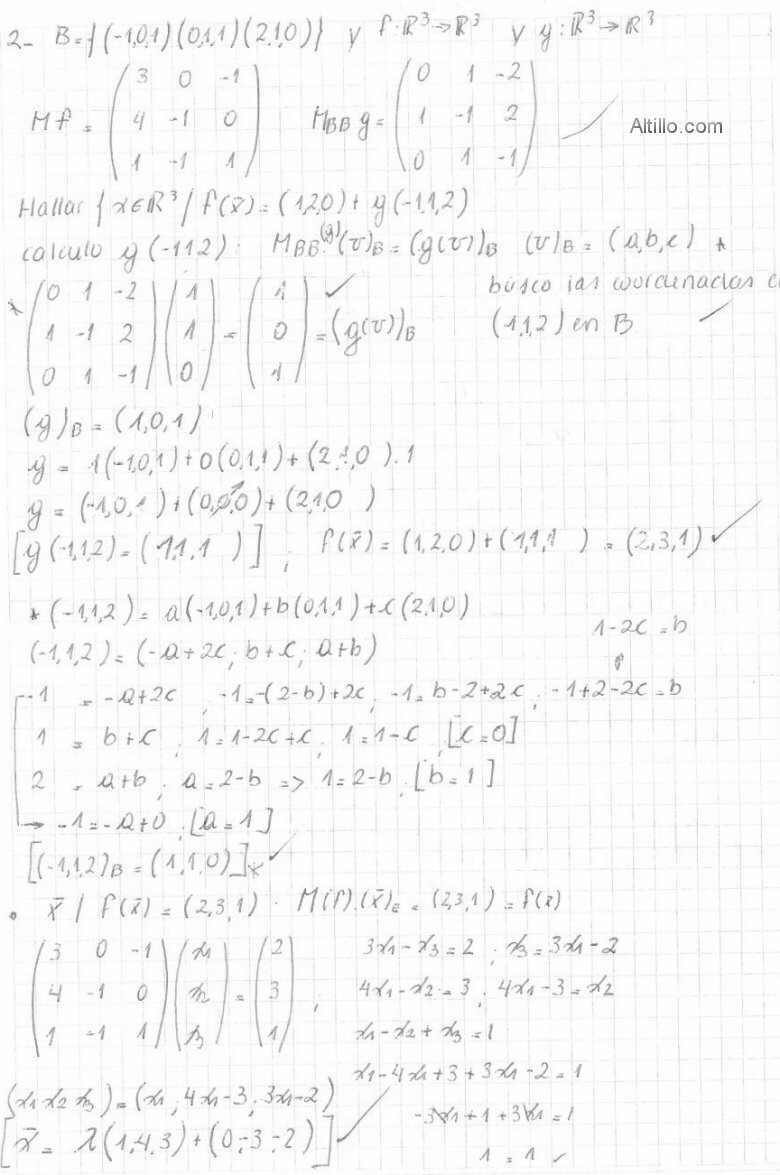 2- B={(-1,0,1)(0,1,1)(2,1,0)} y f:ℝ³→ℝ³ y g:ℝ³→ℝ³
Mf = (3 0 -1; 4 -1 0; 1 -1 1) M_BB g = (0 1 -2; 1 -1 2; 0 1 -1) ✓ Altillo.com
Hallar {x∈ℝ³/f(x̄)=(1,2,0)+g(-1,1,2)
calculo g(-1,1,2): M_BB(g).(v)_B=(g(v))_B (v)_B=(a,b,c) *
busco las coordenadas
* (0 1 -2; 1 -1 2; 0 1 -1)(1; 1; 0) = (1; 0; 1) = (g(v))_B ✓
(1,1,2) en B ✓
(g)_B = (1,0,1)
g = 1(-1,0,1)+0(0,1,1)+(2,1,0).1
g = (-1,0,1)+(0,0,0)+(2,1,0)
[g(-1,1,2)=(1,1,1)] ; f(x̄)=(1,2,0)+(1,1,1)=(2,3,1) ✓
* (-1,1,2)=a(-1,0,1)+b(0,1,1)+c(2,1,0)
1-2c=b
(-1,1,2)=(-a+2c; b+c; a+b)
-1 = -a+2c ; -1=-(2-b)+2c ; -1=b-2+2c ; -1+2-2c=b
1 = b+c ; 1=1-2c+c ; 1=1-c [c=0]
2 = a+b ; a=2-b => 1=2-b ; [b=1]
→ -1=-a+0 ; [a=1]
[(-1,1,2)_B=(1,1,0)]* ✓
• x̄ / f(x̄)=(2,3,1) . M(f).(x̄)_E=(2,3,1)=f(x̄)
(3 0 -1; 4 -1 0; 1 -1 1)(x1; x2; x3) = (2; 3; 1) ;
3x1-x3=2 ; x3=3x1-2
4x1-x2=3 ; 4x1-3=x2
x1-x2+x3=1
x1-4x1+3+3x1-2=1
(x1 x2 x3)=(x1, 4x1-3, 3x1-2)
-3x1+1+3x1=1
[x̄ = λ(1,4,3)+(0,-3,-2)] ✓
1=1 ✓